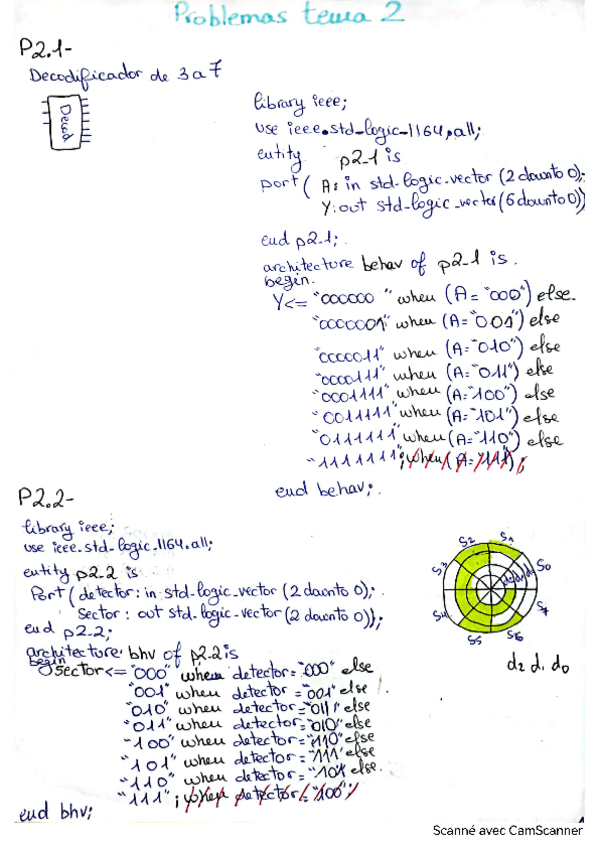 Problemas tema 2
P2.1-
Decodificador de 3 a 7
Decod
library ieee;
use ieee.std_logic_1164.all;
entity p2_1 is
port( A: in std_logic_vector (2 downto 0);
Y: out std_logic_vector (6 downto 0))
end p2_1;
architecture behav of p2_1 is.
begin.
Y<= "000000 " when (A= "000") else.
"0000001" when (A= "001") else
"0000011" when (A= "010") else
"0000111" when (A= "011") else
"0001111" when (A= "100") else
"0011111" when (A= "101") else
"0111111" when (A= "110") else
"1111111"; when (A= "111");
end behav;
P2.2-
library ieee;
use ieee.std_logic_1164.all;
entity p2.2 is
Port ( detector: in std_logic_vector (2 downto 0);
Sector: out std_logic_vector (2 downto 0));
end p2.2;
architecture bhv of p2.2 is
begin
Sector<= "000" when detector= "000" else
"001" when detector = "001" else
"010" when detector= "011" else
"011" when detector= "010" else
"100" when detector= "110" else
"101" when detector= "111" else
"110" when detector= "101" else.
"111"; when detector= "100";
end bhv;
S2 S1
S3 S0
S4 S7
S5 S6
d2 d1 d0
Scanné avec CamScanner